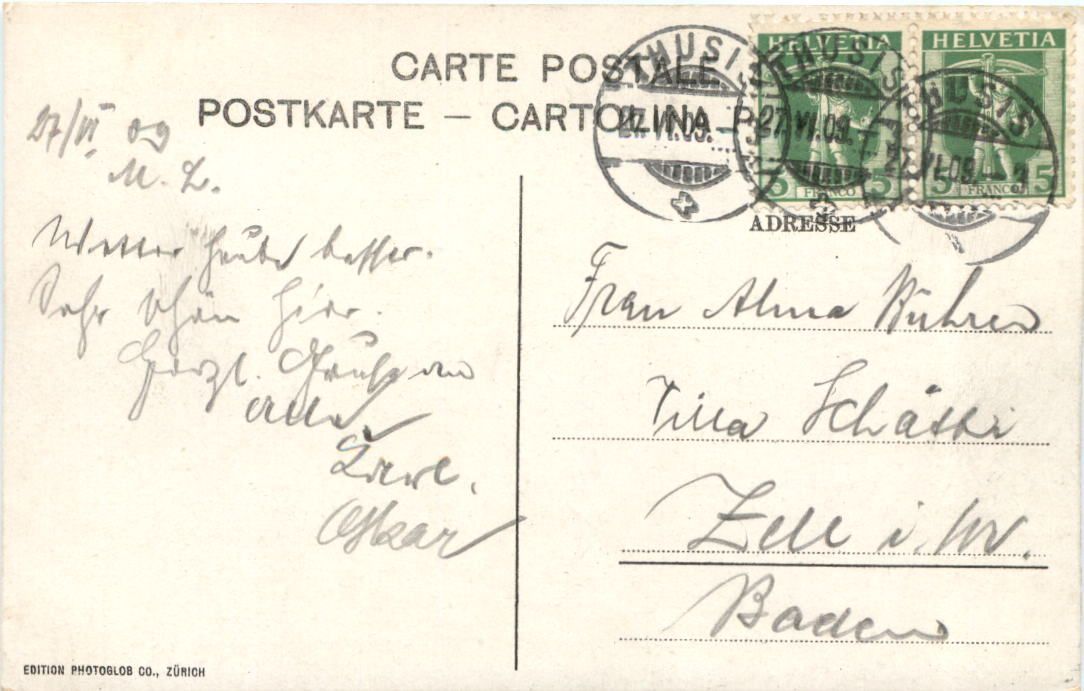 CARTE POSTALE
POSTKARTE – CARTOLINA P
27/VI 09
M. L.
Wetter heute besser.
Sehr schön hier.
Herzl. Grüße an
alle
Karl.
Oskar
EDITION PHOTOGLOB CO., ZÜRICH
HELVETIA
HELVETIA
5 FRANCO 5
5 FRANCO 5
THUSIS
27.VI.09.
THUSIS
27.VI.09.
THUSIS
27.VI.09.
ADRESSE
Frau Alma Bührer
Villa Schätti
Zell i. W.
Baden